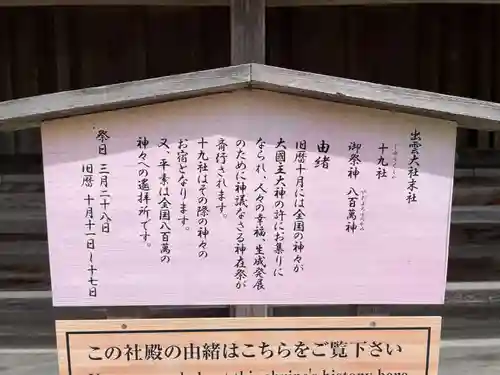 出雲大社末社
十九社
じゅうくしゃ
御祭神 八百萬神
やおよろずのかみ
由緒
旧暦十月には全国の神々が
大國主大神の許にお集りに
なられ、人々の幸福、生成発展
のために神議なさる神在祭が
斎行されます。
十九社はその際の神々の
お宿となります。
又、平素は全国八百萬の
神々への遥拝所です。
祭日 三月二十八日
旧暦 十月十一日~十七日
この社殿の由緒はこちらをご覧下さい